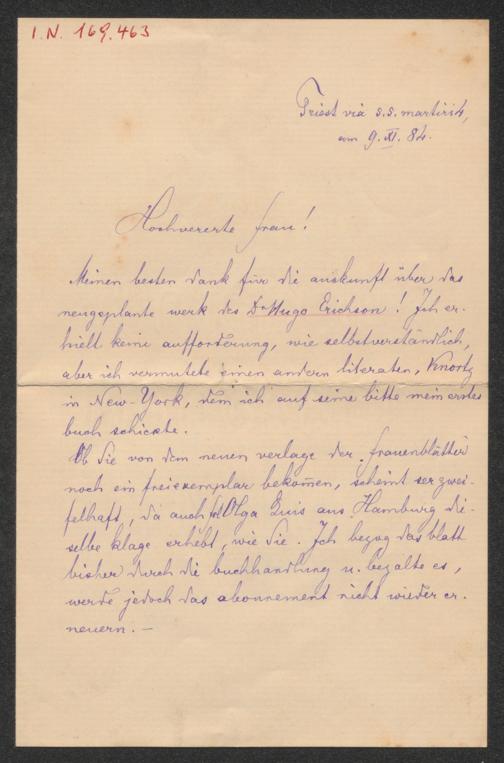 I. N. 169.463
Triest via s.s. martiri 4,
am 9. XI. 84.
Hochvererte frau!
Meinen besten dank für die auskunft über das
neugeplante werk des Dr Hugo Erichson! Ich er-
hielt keine aufforderung, wie selbstverständlich,
aber ich vermutete einen andern literaten, Knortz
in New-York, dem ich auf seine bitte mein erstes
buch schickte.
Ob Sie von dem neuen verlage der "frauenblätter"
noch ein freiexemplar bekomen, scheint ser zwei-
felhaft, da auch frl Olga Luis aus Hamburg die-
selbe klage erhebt, wie Sie. Ich bezog das blatt
bisher durch die buchhandlung u. bezalte es,
werde jedoch das abonnement nicht wieder er-
neuern. –